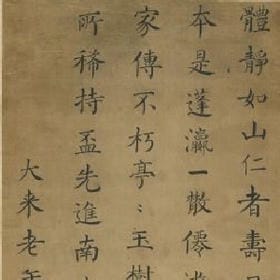 體靜如山仁者壽
本是蓬瀛一散僊
家傳不朽亭〻玉樹
所稀持盃先進南
大来老